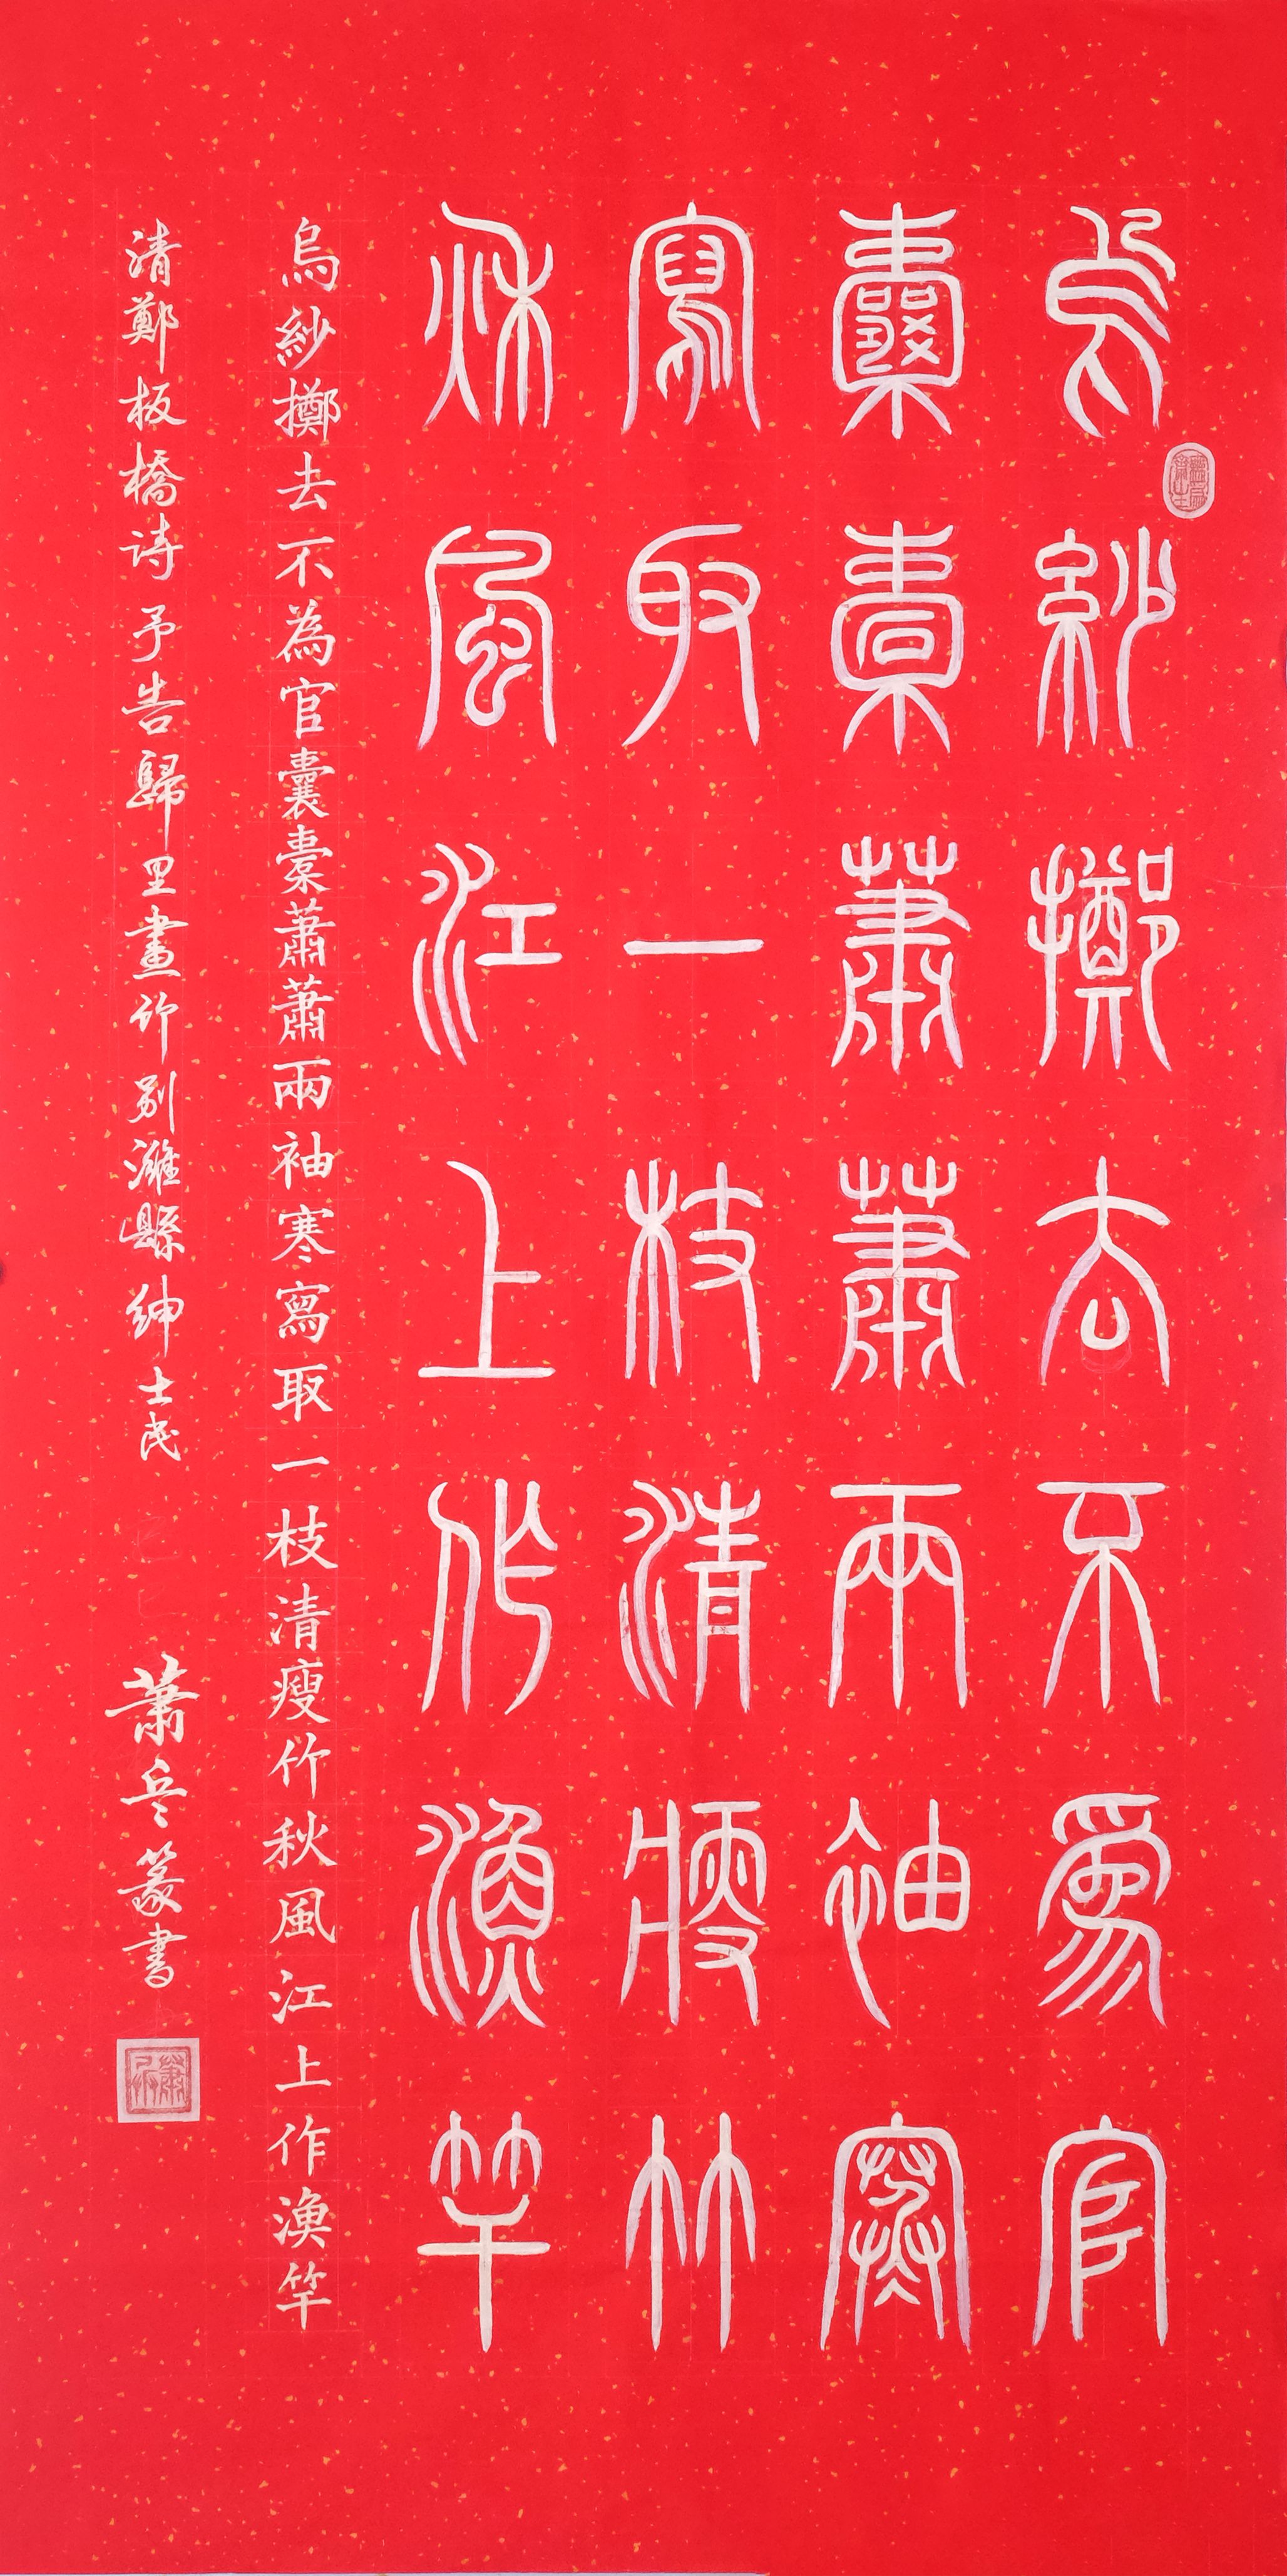 烏紗擲去不爲官
囊橐蕭蕭兩袖寒
寫取一枝清瘦竹
秋風江上作漁竿
烏紗擲去不為官囊橐蕭蕭兩袖寒寫取一枝清瘦竹秋風江上作漁竿
清鄭板橋诗予告歸里畫竹别濰縣紳士民
蕭兵篆書